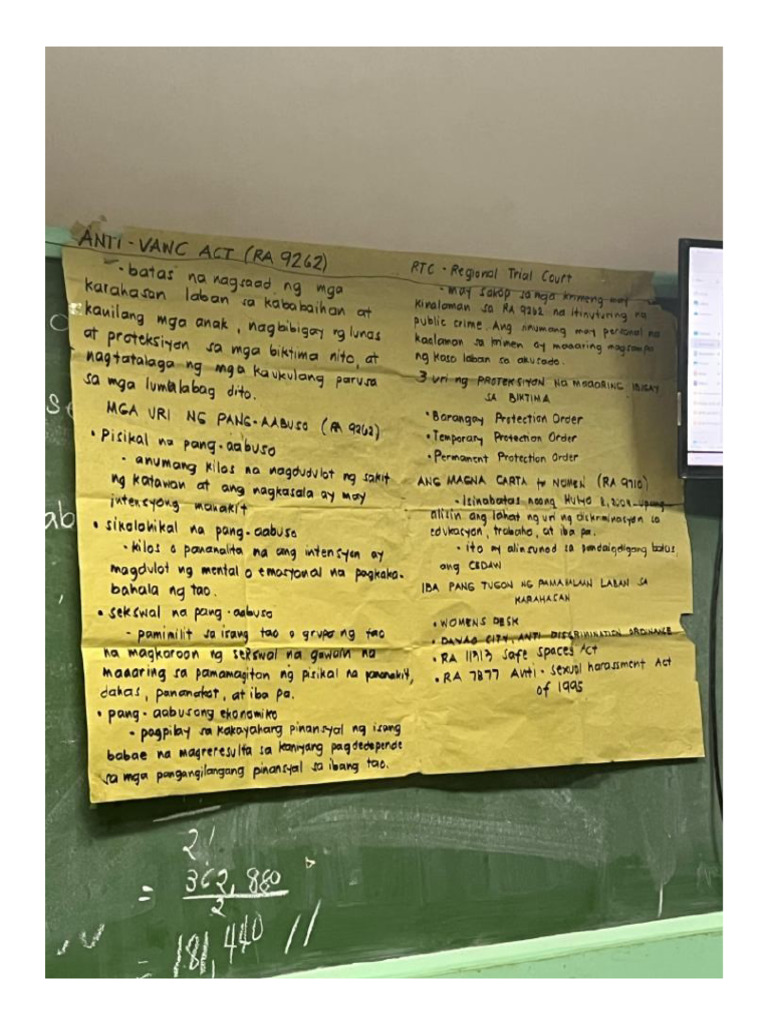 ANTI-VAWC ACT (RA 9262)
- batas na nagsaad ng mga
karahasan laban sa kababaihan at
kanilang mga anak, nagbibigay ng lunas
at proteksiyon sa mga biktima nito, at
nagtatalaga ng mga kaukulang parusa
sa mga lumalabag dito.
MGA URI NG PANG-AABUSO (RA 9262)
• Pisikal na pang-aabuso
- anumang kilos na nagdudulot ng sakit
ng katawan at ang nagkasala ay may
intensyong manakit
• sikolohikal na pang-aabuso
- kilos o pananalita na ang intensyon ay
magdulot ng mental o emosyonal na pagkaka-
bahala ng tao.
• sekswal na pang-aabuso
- pamimilit sa isang tao o grupo ng tao
na magkaroon ng sekswal na gawain na
maaaring sa pamamagitan ng pisikal na pananakit,
dahas, pananakot, at iba pa.
• pang-aabusong ekonomiko
- pagpilay sa kakayahang pinansyal ng isang
babae na magreresulta sa kaniyang pagdedepende
sa mga pangangilangang pinansyal sa ibang tao.
RTC - Regional Trial Court
- may sakop sa mga krimeng may
kinalaman sa RA 9262 na itinuturing na
public crime. Ang anumang may personal na
kaalaman sa krimen ay maaaring magsampa
ng kaso laban sa akusado.
3 uri ng PROTEKSIYON NA MAAARING IBIGAY
SA BIKTIMA
• Barangay Protection Order
• Temporary Protection Order
• Permanent Protection Order
ANG MAGNA CARTA for WOMEN (RA 9710)
- Isinabatas noong Hulyo 8, 2009 upang
alisin ang lahat ng uri ng diskriminasyon sa
edukasyon, trabaho, at iba pa.
- ito ay alinsunod sa pandaigdigang batas,
ang CEDAW
IBA PANG TUGON NG PAMAHALAAN LABAN SA
KARAHASAN
• WOMENS DESK
• DAVAO CITY: ANTI DISCRIMINATION ORDINANCE
• RA 11313 Safe Spaces Act
• RA 7877 Anti-Sexual harassment Act
of 1995
ab
2!
= 362,880
2
= 181,440 //